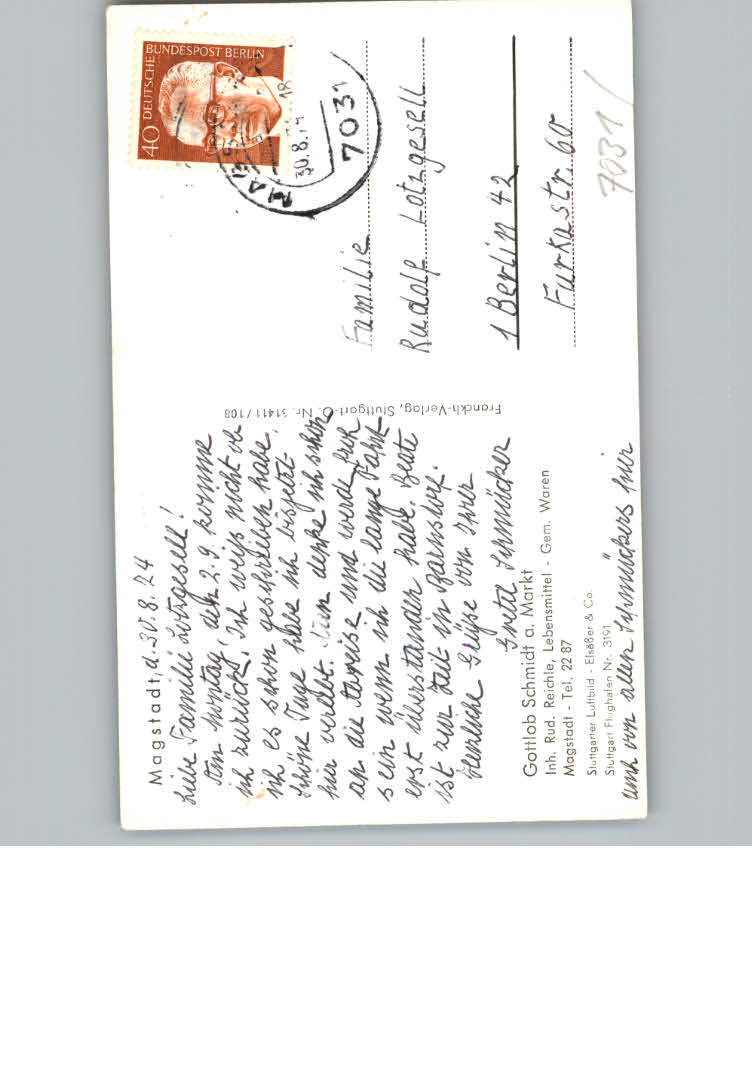 Magstadt, d. 30.8.74
Liebe Familie Lotzgesell!
Am Montag, den 2.9. komme
ich zurück. Ich weiß nicht ob
ich es schon geschrieben habe.
Schöne Tage habe ich bisjetzt
hier verlebt. Nun denke ich schon
an die Abreise und werde froh
sein wenn ich die lange Fahrt
erst überstanden habe. Beate
ist zur Zeit in
Herzliche Grüße von Ihrer
Grete Schmücker
und von allen Schmückers hier
Gottlob Schmidt a. Markt
Inh. Rud. Reichle, Lebensmittel - Gem. Waren
Magstadt - Tel. 22 87
Stuttgarter Luftbild - Elsäßer & Co.
Stuttgart Flughafen Nr. 3191
Franckh-Verlag, Stuttgart-O. Nr. 31411/108
DEUTSCHE BUNDESPOST BERLIN
40
30.8.74
18
7031
Familie
Rudolf Lotzgesell
1 Berlin 42
Furkastr. 60
7031/